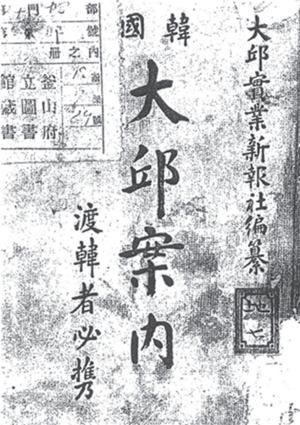 大邱實業新報社編纂
韓國
大邱案内
渡韓者必携
部
門
號
内
之
冊
釜山府
立圖書
館藏書